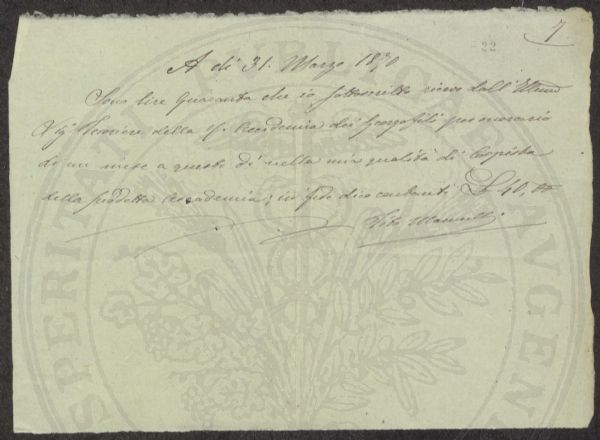 7
22
A dì 31. Marzo 1870
Sono lire Quaranta che io sottoscritto ricevo dall' Illmo
Sigr Tesoriere della R. Accademia dei Georgofili per onorario
di un mese a questo dì nella mia qualità di Copista
della suddetta Accademia; in fede dico contanti £ 40, "
Vito
PROSPERITATI PUBLICAE AUGENDAE